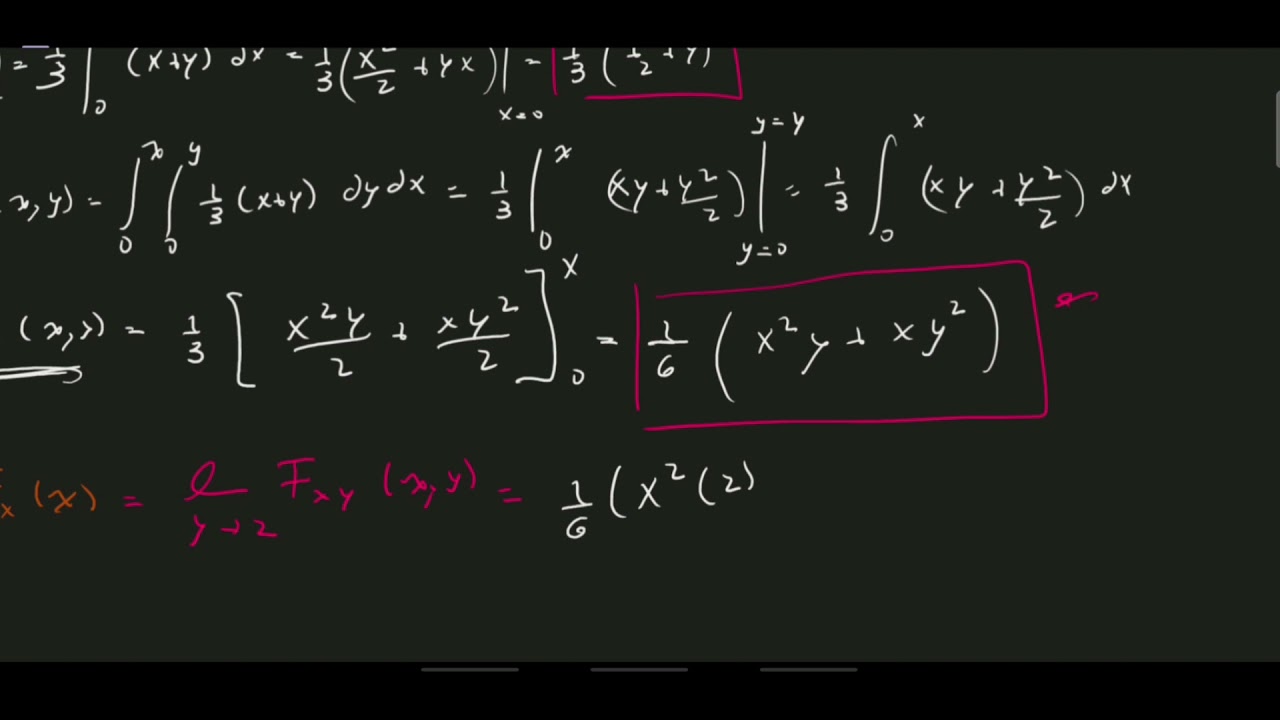 = 1/3 ∫_0 (x+y) dx = 1/3 (x²/2 + yx)|_{x=0} = 1/3 (1/2 + y)
x,y) = ∫_0^x ∫_0^y 1/3 (x+y) dy dx = 1/3 ∫_0^x (xy + y²/2)|_{y=0}^{y=y} = 1/3 ∫_0^x (xy + y²/2) dx
(x,y) = 1/3 [x²y/2 + xy²/2]_0^x = 1/6 (x²y + xy²)
x (x) = l_{y→2} F_{xy} (x,y) = 1/6 (x²(2)